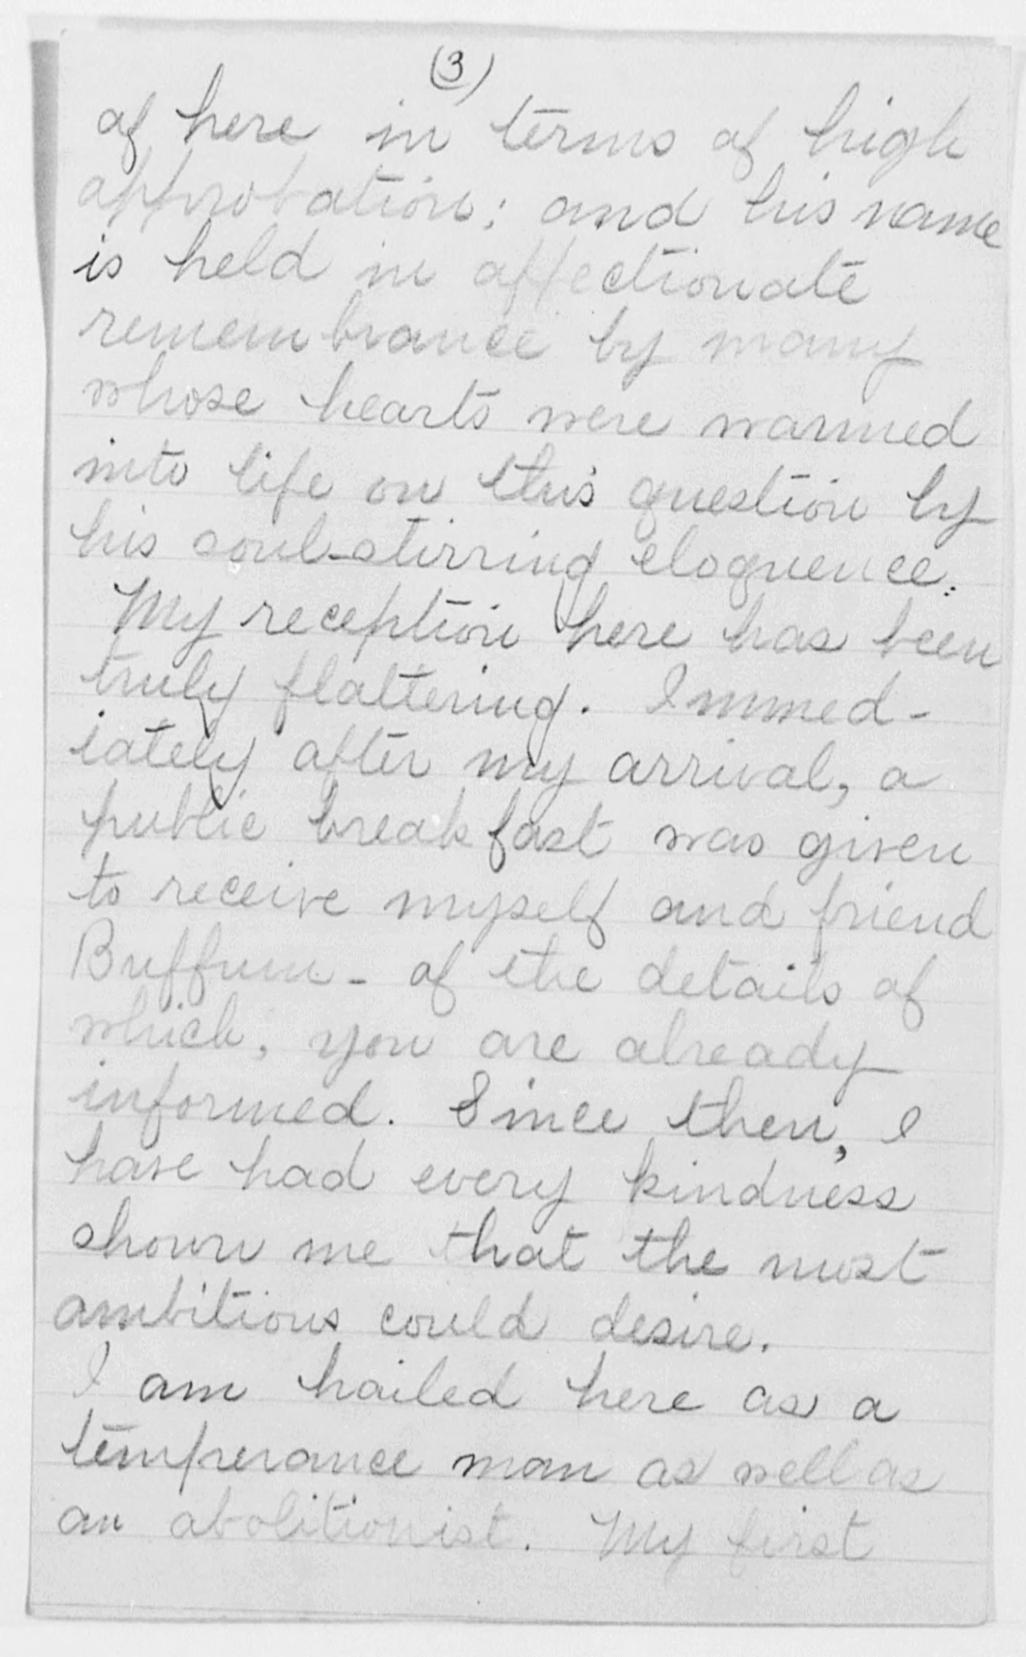 (3)
of here in terms of high
approbation; and his name
is held in affectionate
remembrance by many
whose hearts were warmed
into life on this question by
his soul-stirring eloquence.
My reception here has been
truly flattering. Immed-
iately after my arrival, a
public breakfast was given
to receive myself and friend
Buffum - of the details of
which, you are already
informed. Since then, I
have had every kindness
shown me that the most
ambitious could desire.
I am hailed here as a
temperance man as well as
an abolitionist. My first